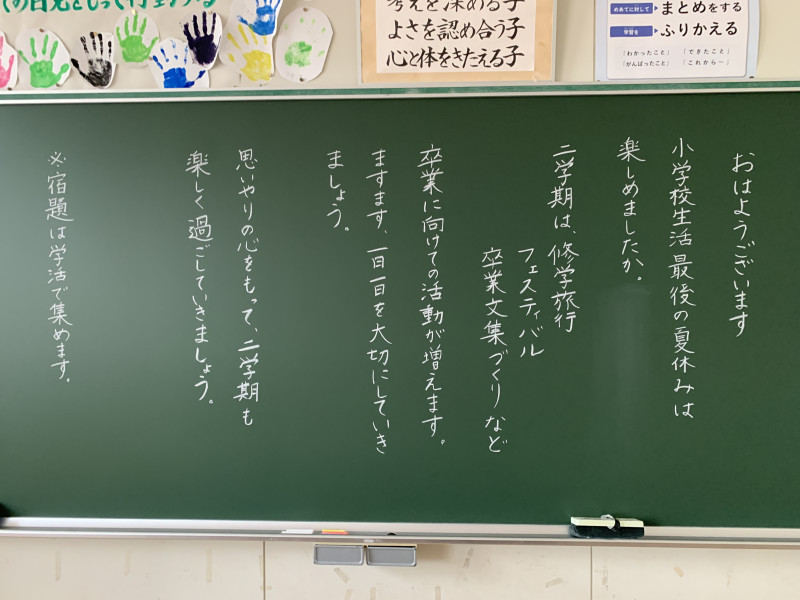 の自覚をもって行動する
考えを深める子
よさを認め合う子
心と体をきたえる子
めあてに対して
まとめをする
学習を
ふりかえる
「わかったこと」 「できたこと」
「がんばったこと」 「これから~」
おはようございます
小学校生活最後の夏休みは
楽しめましたか。
二学期は、修学旅行
フェスティバル
卒業文集づくりなど
卒業に向けての活動が増えます。
ますます、一日一日を大切にしていき
ましょう。
思いやりの心をもって、二学期も
楽しく過ごしていきましょう。
※宿題は学活で集めます。